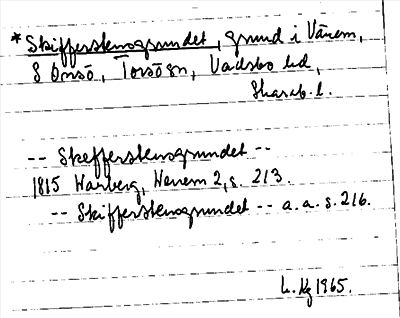 * Skiffersteusgrundet, grund i Vänern,
S Onsö, Torsö sn, Vadsbo hd,
Skarab. l.
-- Skeffersteusgrundet --
1815 Warberg, Wenern 2, s. 213.
-- Skiffersteusgrundet -- a.a. s. 216.
1965.